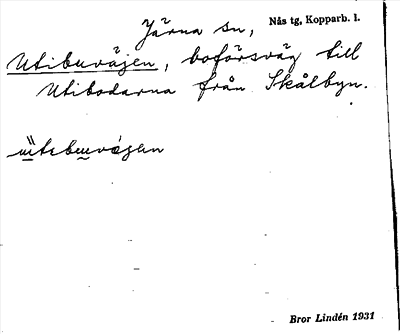 Järna sn, Nås tg, Kopparb. l.
Utibuväjen, boförsväg till
Utibodarna från Skålbyn.
Bror Lindén 1931